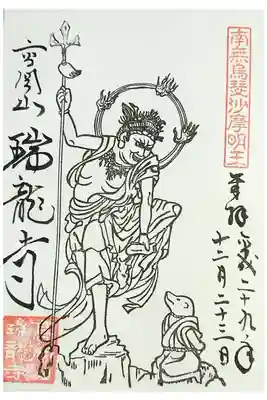 南無烏瑟沙摩明王
奉拝 平成二十九年
十二月二十三日
高岡山
瑞龍寺